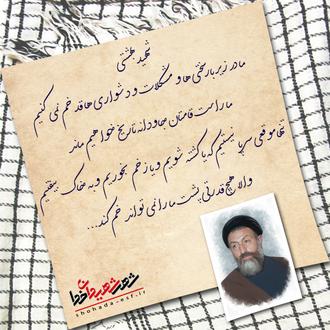 شهید بهشتی
ما در زیر بار سختی ها و مشکلات و دشواری ها قد خم نمی کنیم
ما راست قامتان جاودانه تاریخ خواهیم ماند
تنها موقعی سر پا نیستیم که یا کشته شویم و یا زخم بخوریم و به خاک بیفتیم
والا هیچ قدرتی پشت ما را نمی تواند خم کند...
shohada-esf.ir